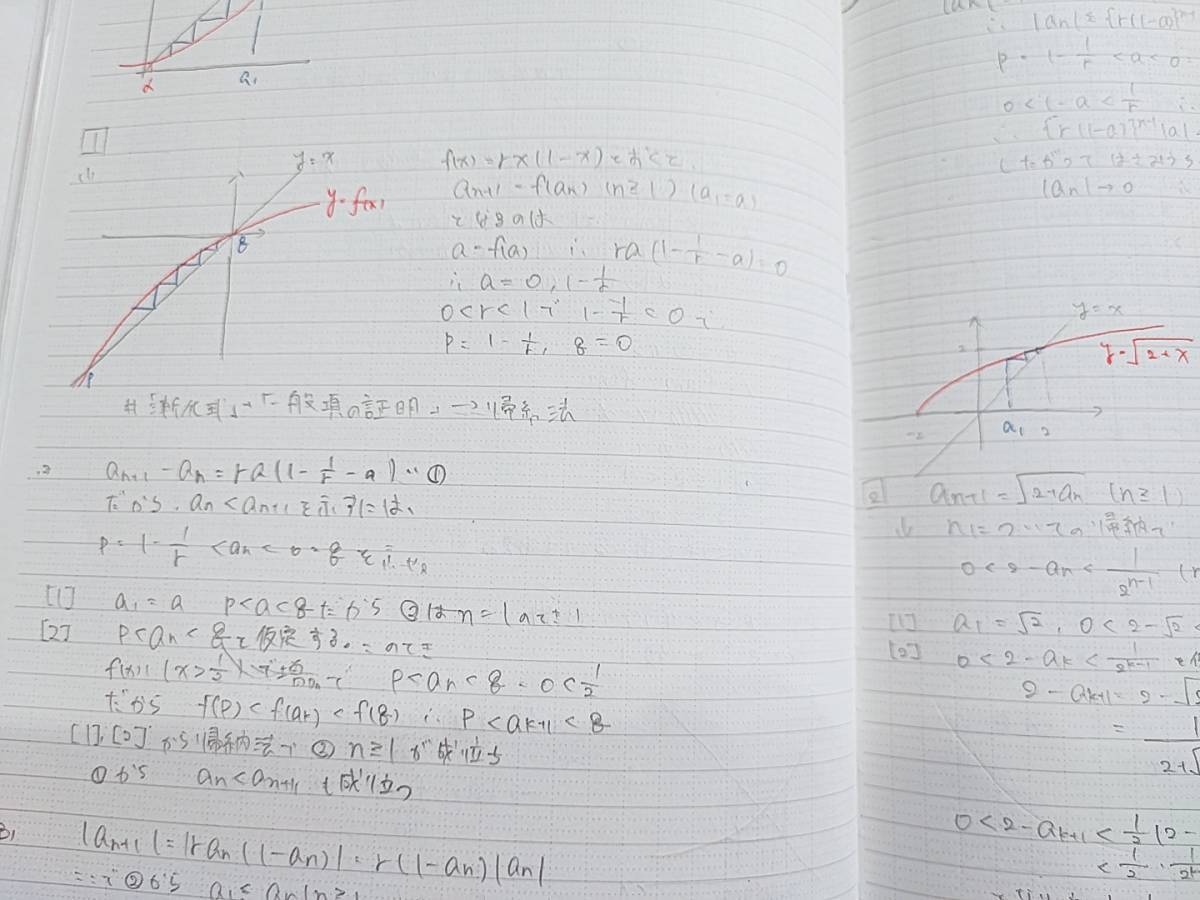 α
a₁
1
(1)
y=x
y=f(x)
8
P
f(x)=rx(1-x)とおくと、
an+1=f(an) (n≥1) (a1=a)
となるのは
a=f(a) ∴ ra(1-1/r-a)=0
∴ a=0, 1-1/r
0<r<1で 1-1/r<0で
P=1-1/r, 8=0
#「漸化式」→「一般項の証明」→帰納法
an+1-an=ra(1-1/r-a)…①
だから、an<an+1を示すには、
P=1-1/r<an<0=8を示せば
[1] a1=a P<a<8だから②はn=1のとき
[2] P<an<8と仮定する。このとき
f(x)は(x>1/2)で増加で P<an<8=0<1/2
だから f(P)<f(ak)<f(8) ∴ P<ak+1<8
[1],[2]から帰納法で② n≥1が成り立ち
①から an<an+1も成り立つ
|an+1|=|ran(1-an)|=r(1-an)|an|
②から a1≤an(n≥
∴ |an|≤{r(1-a)}
P=1-1/r<a<0
0<1-a<1/r
∴ {r(1-a)}ⁿ⁻¹|a|
したがって はさみうち
|an|→0
y=x
y=√2+x
2
-2
a₁
2
2 an+1=√2+an (n≥1)
(1) nについての帰納で
0<2-an<1/2ⁿ⁻¹
[1] a1=√2, 0<2-√2<
[2] 0<2-ak<1/2ᵏ⁻¹と
2-ak+1=2-√2
= 1
2+√
0<2-ak+1<1/2(2-
<1/2・1/2